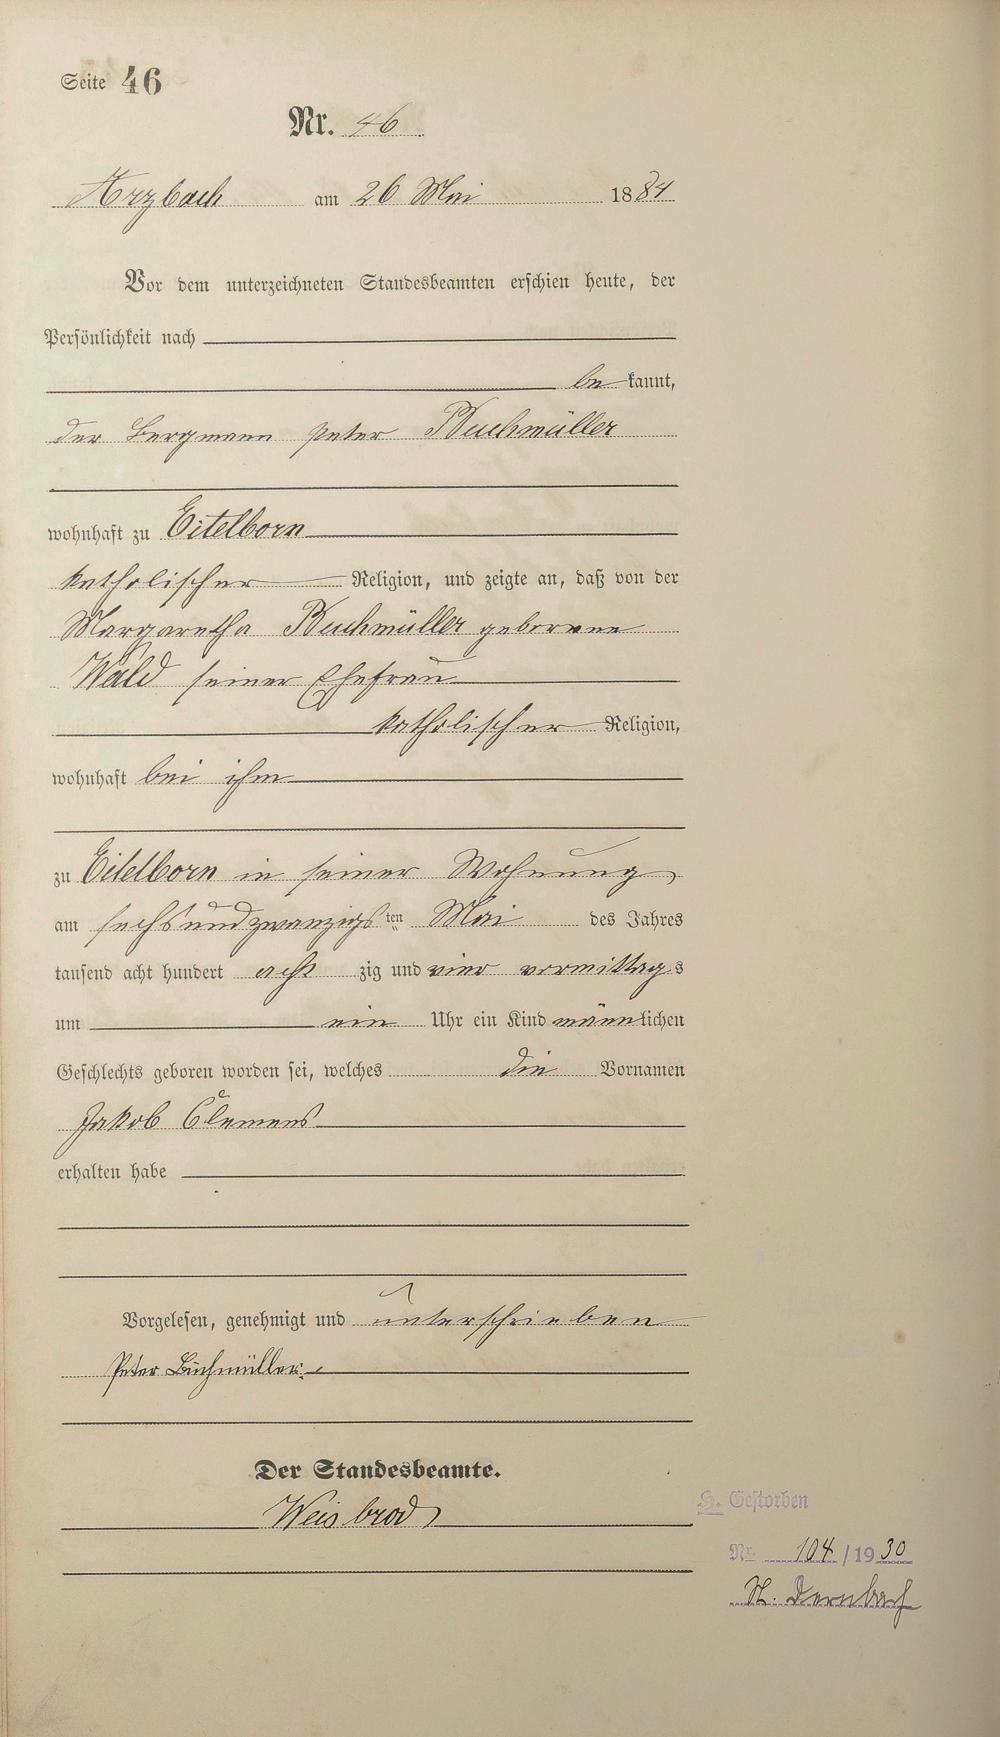 Seite 46
Nr. 46
Arzbach am 26 Mai 1884
Vor dem unterzeichneten Standesbeamten erschien heute, der
Persönlichkeit nach
be kannt,
der Bergmann Peter Buchmüller
wohnhaft zu Eitelborn
katholischer Religion, und zeigte an, daß von der
Margaretha Buchmüller geborene
Wald seiner Ehefrau
katholischer Religion,
wohnhaft bei ihm
zu Eitelborn in seiner Wohnung
am sechsundzwanzigs ten Mai des Jahres
tausend acht hundert acht zig und vier vormittag s
um ein Uhr ein Kind männlichen
Geschlechts geboren worden sei, welches die Vornamen
Jakob Clemens
erhalten habe
Vorgelesen, genehmigt und unterschrieben
Peter Buchmüller.
Der Standesbeamte.
Weisbrod
H. Gestorben
Nr. 104/1930
St. Dernbach